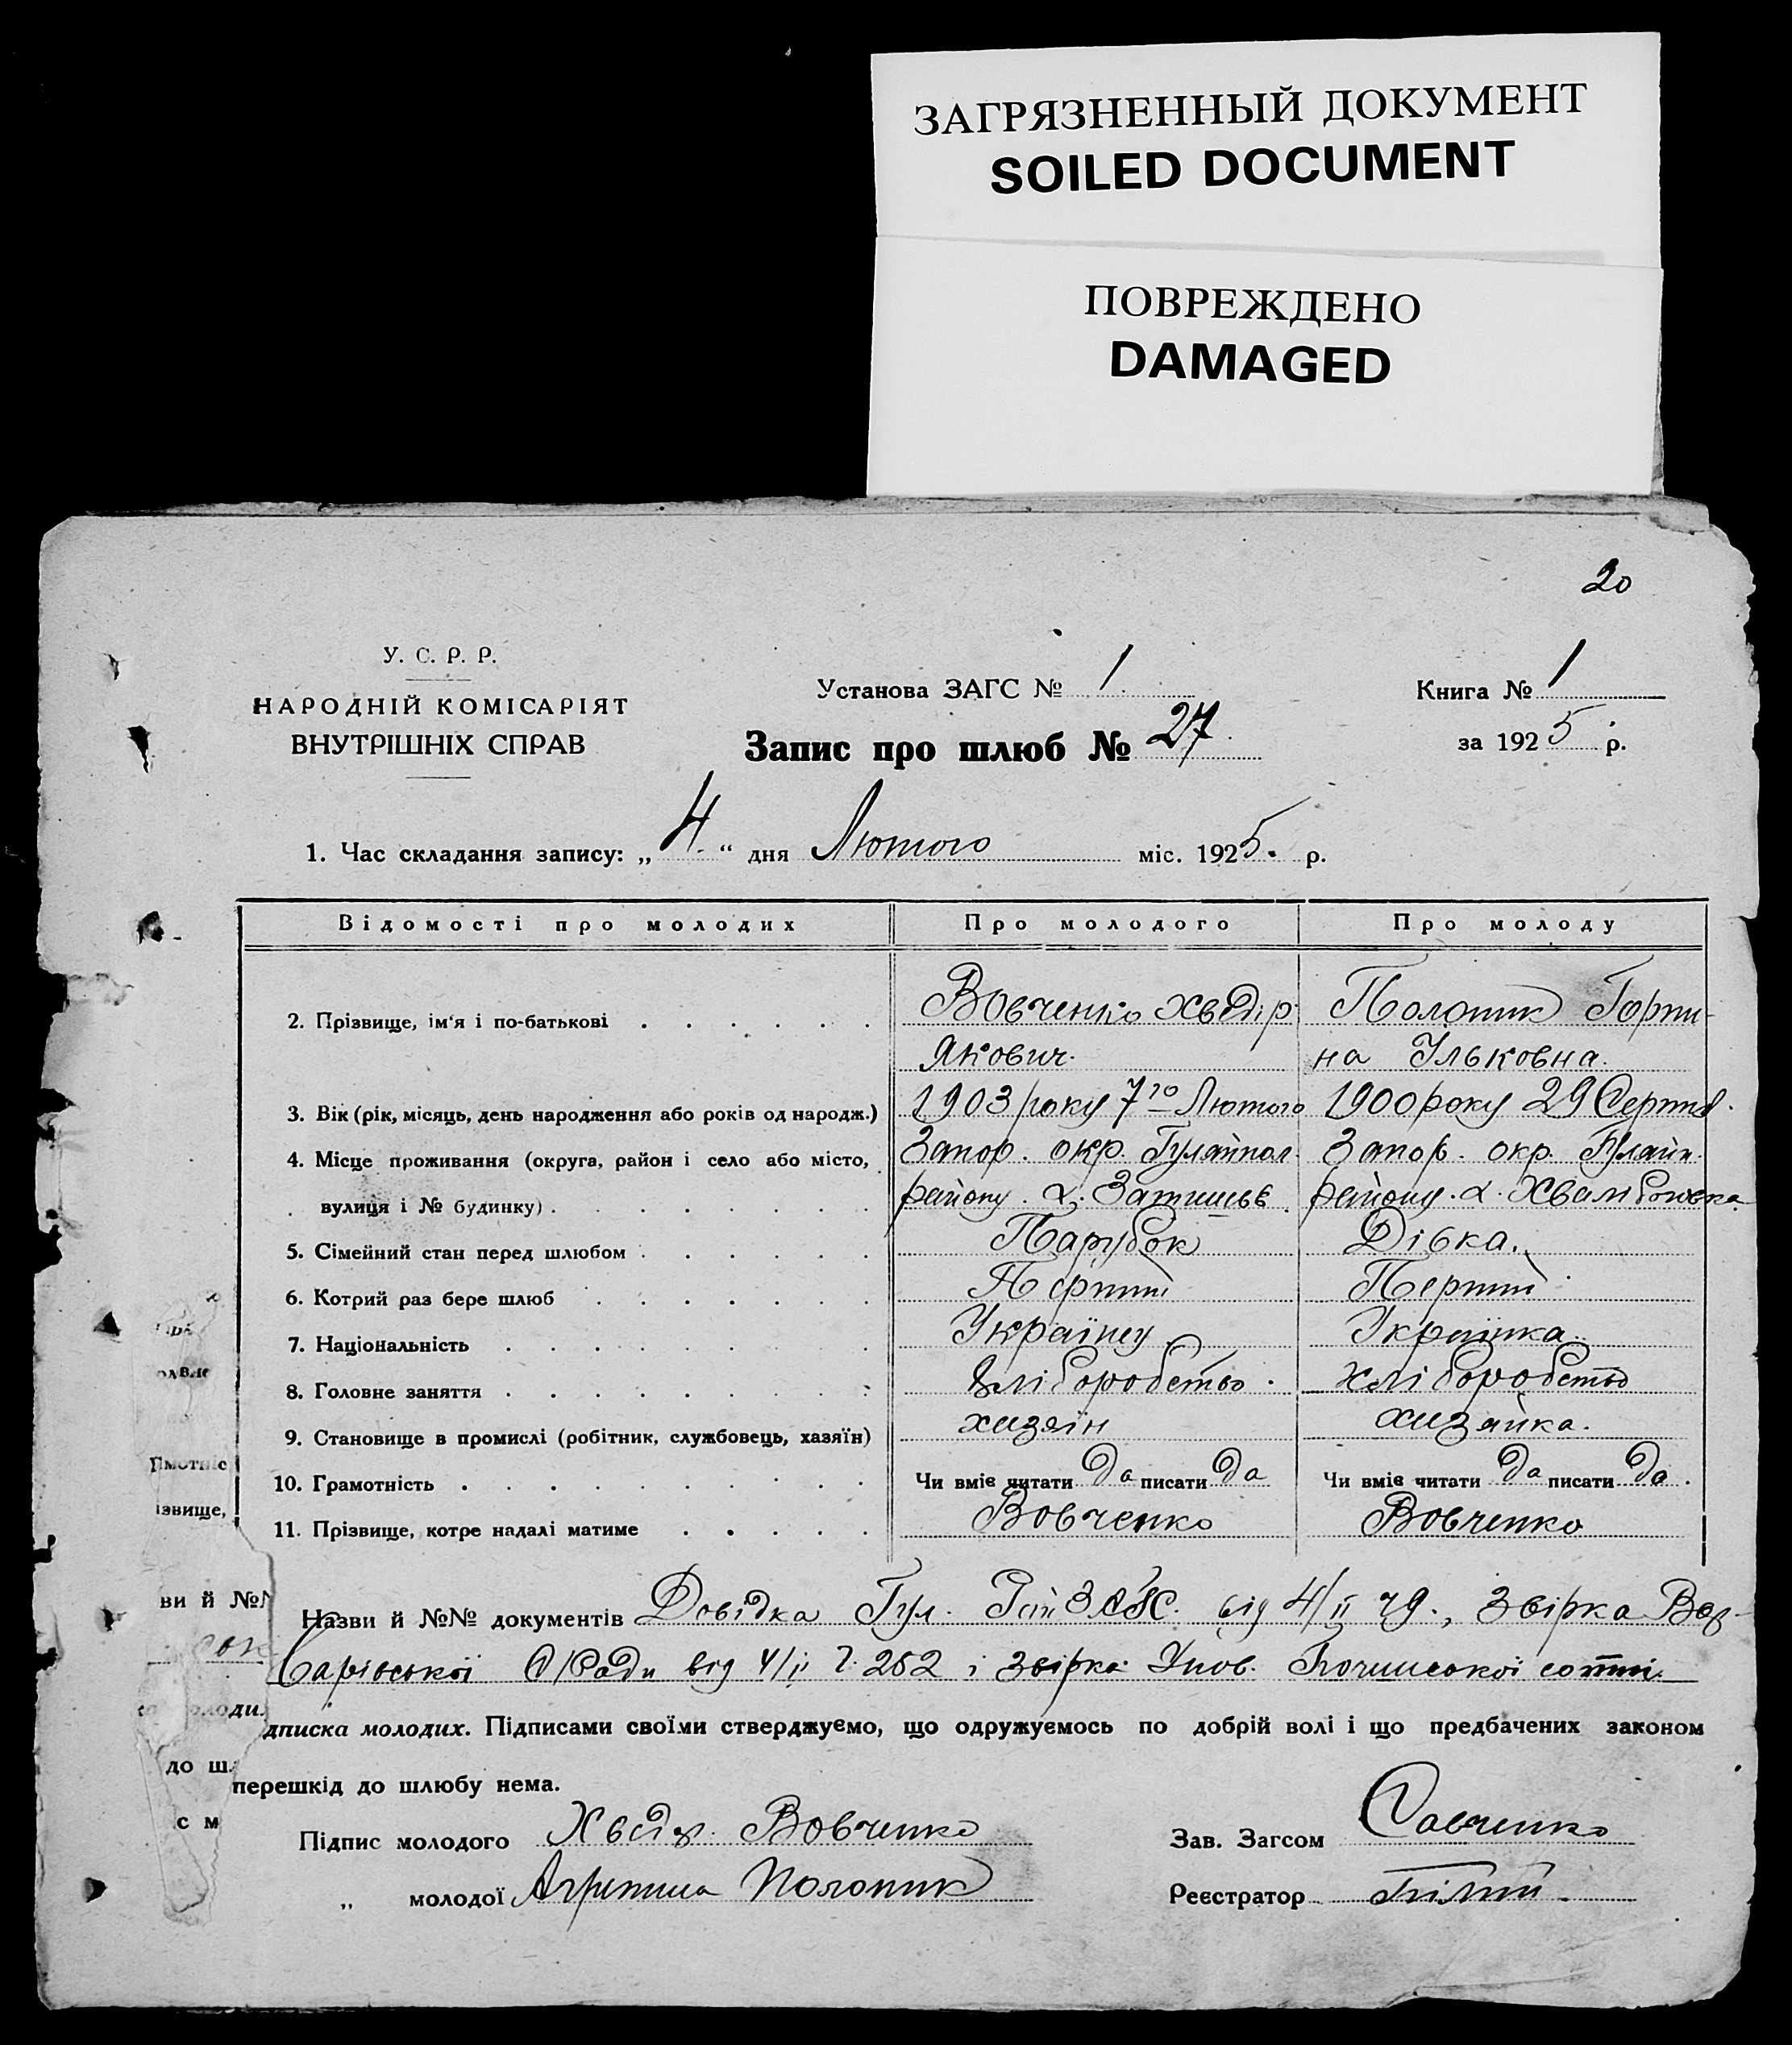 ЗАГРЯЗНЕННЫЙ ДОКУМЕНТ
SOILED DOCUMENT
ПОВРЕЖДЕНО
DAMAGED
20
У. С. Р. Р.
НАРОДНІЙ КОМІСАРІЯТ
ВНУТРІШНІХ СПРАВ
Установа ЗАГС № 1
Запис про шлюб № 27
Книга № 1
за 1925 р.
1. Час складання запису: „4“ дня Лютого міс. 1925. р.
Відомості про молодих Про молодого Про молоду
2. Прізвище, ім'я і по-батькові Вовченко Хведір Полотик Горпи-
Якович. на Ільковна.
3. Вік (рік, місяць, день народження або років од народж.) 1903 року 7го Лютого 1900 року 29 Серпня.
4. Місце проживання (округа, район і село або місто, Запор. окр. Гуляйпол. Запор. окр. Гуляйп.
вулиця і № будинку) району. Затишьє району.
5. Сімейний стан перед шлюбом Парубок Дівка.
6. Котрий раз бере шлюб Перший Перший
7. Національність Українец Українка
8. Головне заняття Хліборобство. Хліборобство
9. Становище в промислі (робітник, службовець, хазяїн) хазяїн хазяйка.
10. Грамотність Чи вміє читати Да писати Да Чи вміє читати Да писати Да.
11. Прізвище, котре надалі матиме Вовченко Вовченко
Назви й №№ документів Довідка Гул. від 4/ІІ звірка Вар-
варівської С/Ради від 4/ІІ 252 і звірка сотні.
дписка молодих. Підписами своїми стверджуємо, що одружуємось по добрій волі і що предбачених законом
перешкід до шлюбу нема.
Підпис молодого Хведір Вовченко
Зав. Загсом Савченко
„ молодої Агрепина Полотик
Реєстратор Білий
ізвище,
ви й №№
до шл
с м